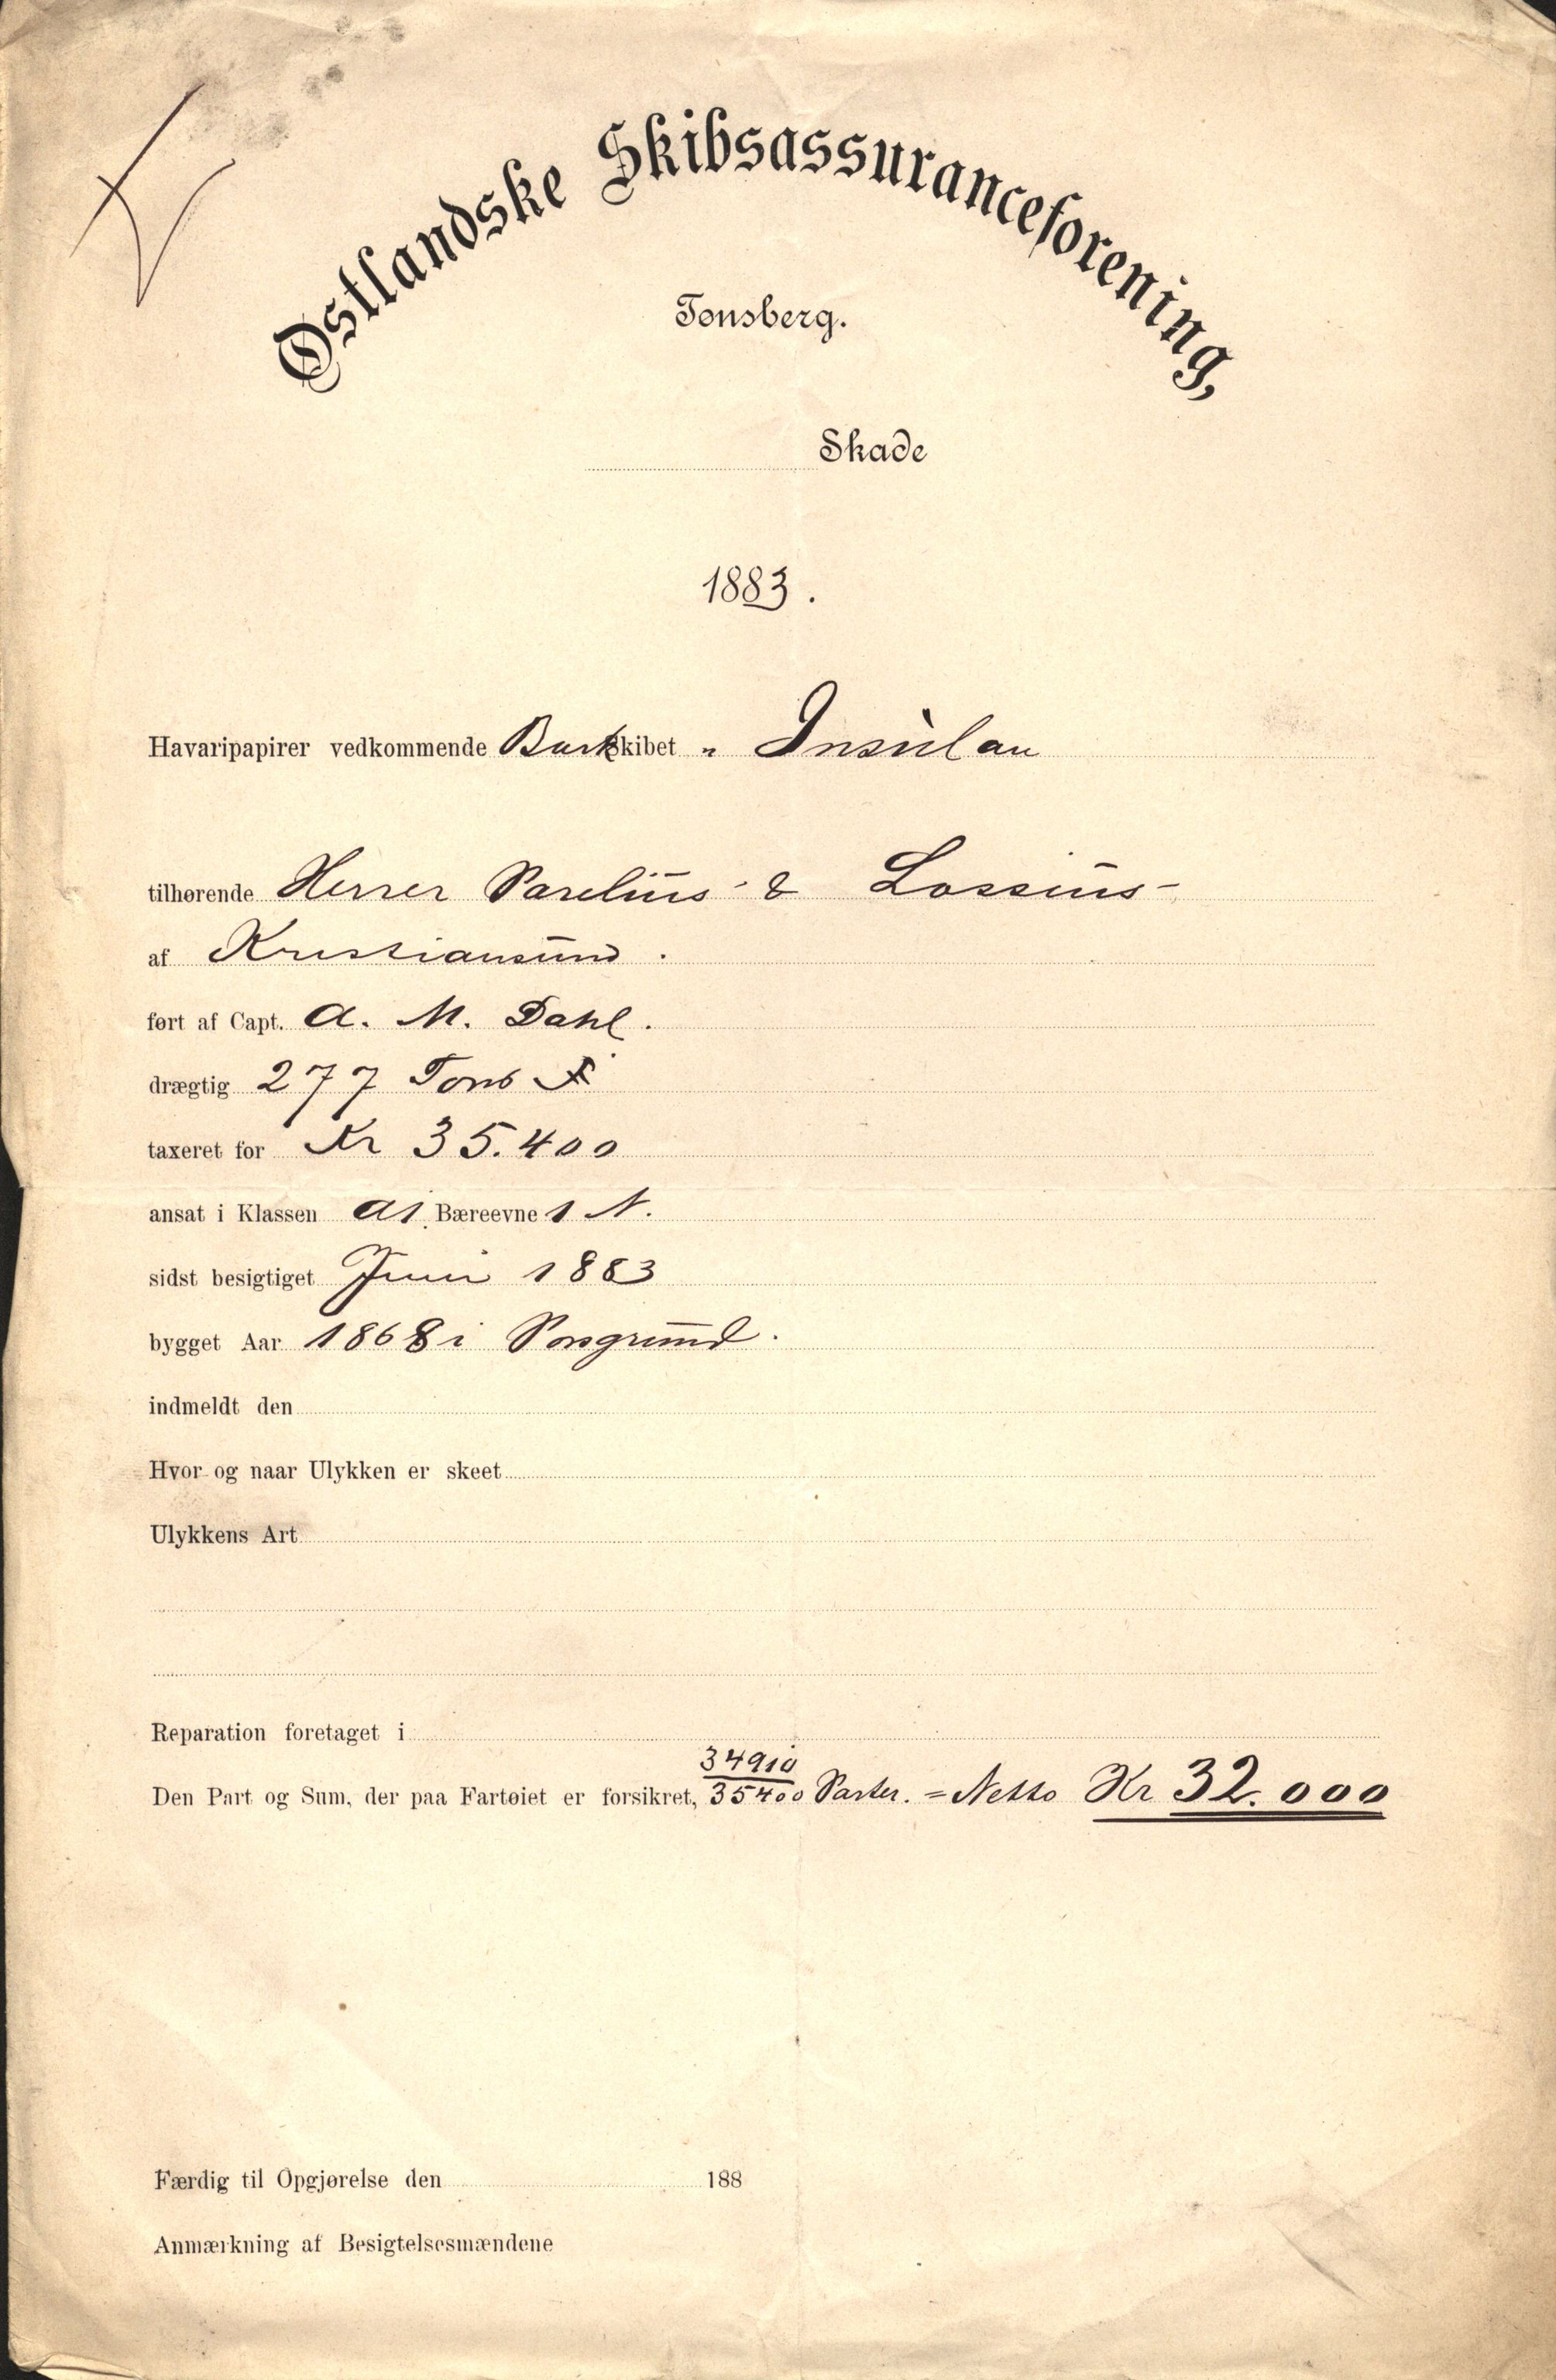 Østlandske Skibsassuranceforening,
Tønsberg.
Skade
1883.
Havaripapirer vedkommende Barkskibet „ Insulan
tilhørende Herrer Parelius & Lossius
af Kristiansund.
ført af Capt. A. M. Dahl.
drægtig 277 Tons
taxeret for Kr 35.400
ansat i Klassen A1. Bæreevne 1 N.
sidst besigtiget Juni 1883
bygget Aar 1868 i Porsgrund.
indmeldt den
Hvor og naar Ulykken er skeet
Ulykkens Art
Reparation foretaget i
34910
Den Part og Sum, der paa Fartøiet er forsikret, 35400 Parter. = Netto Kr 32.000
Færdig til Opgjørelse den 188
Anmærkning af Besigtelsesmændene